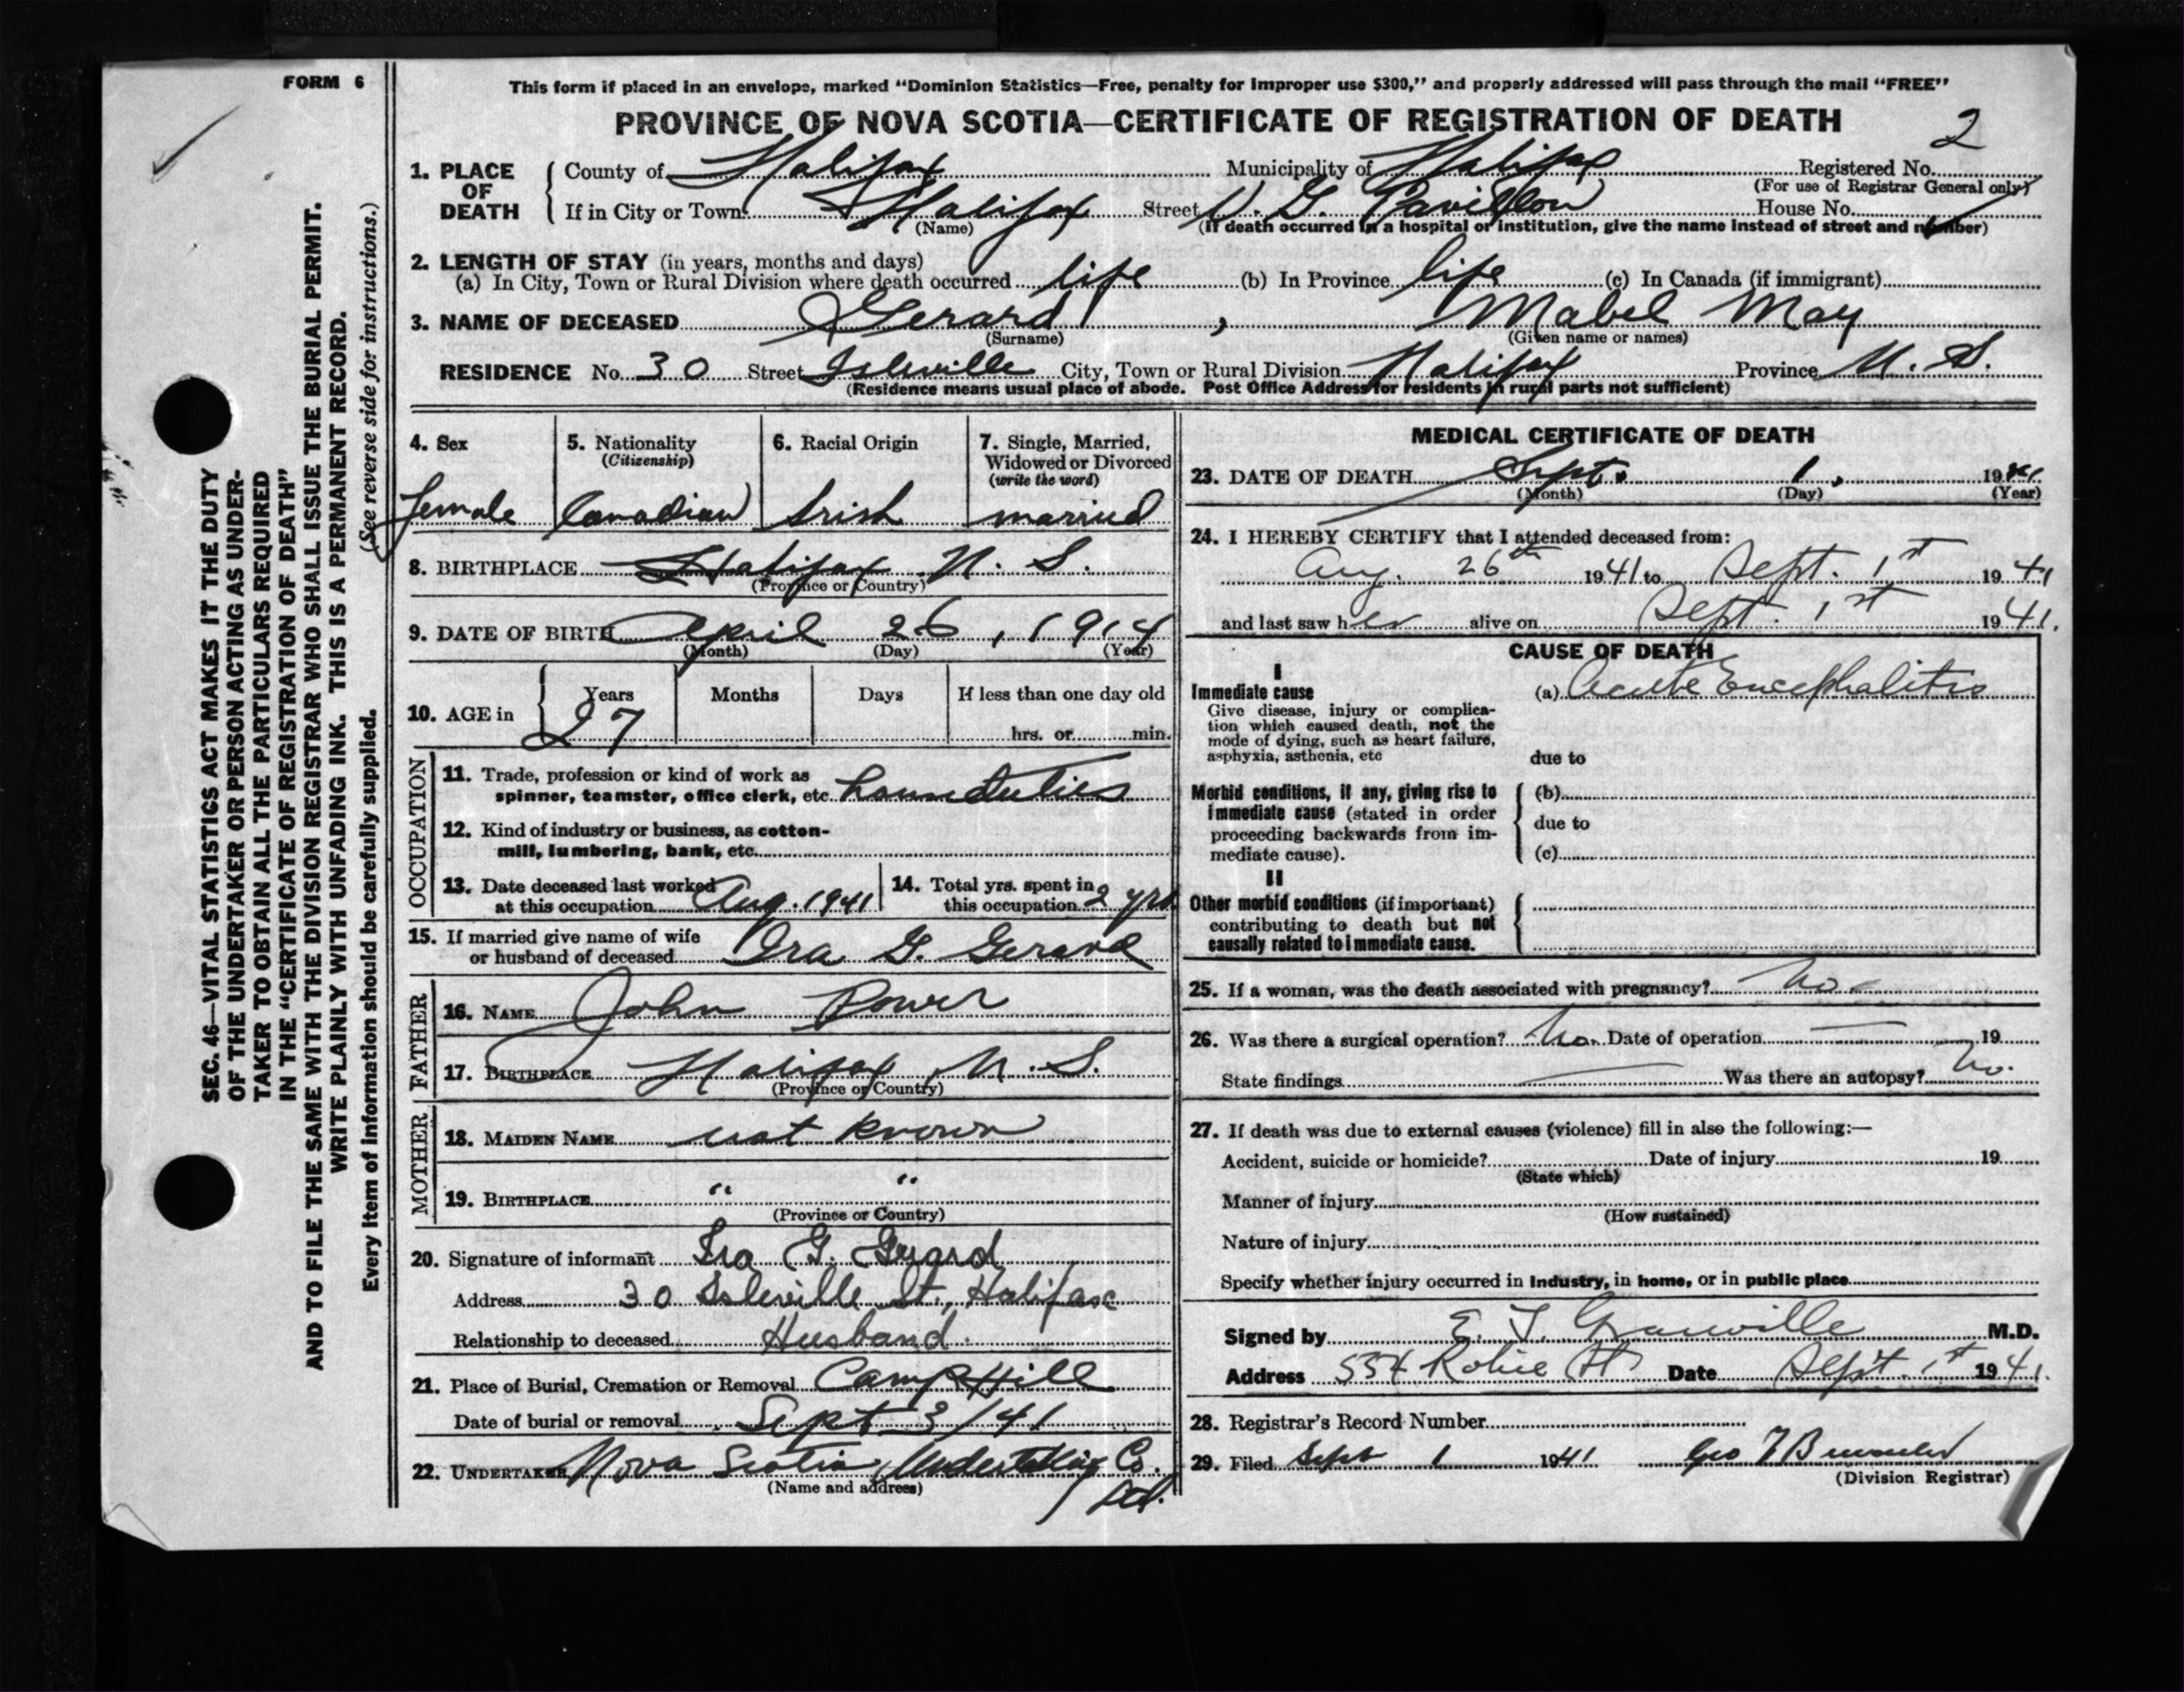 FORM 6
This form if placed in an envelope, marked "Dominion Statistics—Free, penalty for improper use $300," and properly addressed will pass through the mail "FREE"
PROVINCE OF NOVA SCOTIA—CERTIFICATE OF REGISTRATION OF DEATH
2
1. PLACE OF DEATH
County of Halifax Municipality of Halifax Registered No.
(For use of Registrar General only)
If in City or Town Halifax Street V. G. Pavillion House No.
(Name) (If death occurred in a hospital or institution, give the name instead of street and number)
2. LENGTH OF STAY (in years, months and days)
(a) In City, Town or Rural Division where death occurred life (b) In Province life (c) In Canada (if immigrant)
3. NAME OF DECEASED Gerard , Mabel May
(Surname) (Given name or names)
RESIDENCE No. 30 Street Isleville City, Town or Rural Division Halifax Province N. S.
(Residence means usual place of abode. Post Office Address for residents in rural parts not sufficient)
4. Sex
female
5. Nationality
(Citizenship)
Canadian
6. Racial Origin
Irish
7. Single, Married,
Widowed or Divorced
(write the word)
married
8. BIRTHPLACE Halifax N. S.
(Province or Country)
9. DATE OF BIRTH April 26, 1914
(Month) (Day) (Year)
10. AGE in
Years Months Days If less than one day old
27 hrs. or min.
OCCUPATION
11. Trade, profession or kind of work as
spinner, teamster, office clerk, etc. house duties
12. Kind of industry or business, as cotton-
mill, lumbering, bank, etc.
13. Date deceased last worked
at this occupation Aug. 1941
14. Total yrs. spent in
this occupation 2 yrs
15. If married give name of wife
or husband of deceased Ira G. Gerard
FATHER
16. NAME John Power
17. BIRTHPLACE Halifax N. S.
(Province or Country)
MOTHER
18. MAIDEN NAME not known
19. BIRTHPLACE " "
(Province or Country)
20. Signature of informant Ira G. Gerard
Address 30 Isleville St., Halifax
Relationship to deceased Husband.
21. Place of Burial, Cremation or Removal Camp Hill
Date of burial or removal Sept 3/41
22. UNDERTAKER Nova Scotia Undertaking Co.
(Name and address) Ltd.
MEDICAL CERTIFICATE OF DEATH
23. DATE OF DEATH Sept. 1, 1941
(Month) (Day) (Year)
24. I HEREBY CERTIFY that I attended deceased from:
Aug. 26th 1941 to Sept. 1st 1941
and last saw her alive on Sept. 1st 1941.
CAUSE OF DEATH
I
Immediate cause
Give disease, injury or complica-
tion which caused death, not the
mode of dying, such as heart failure,
asphyxia, asthenia, etc
(a) Acute Encephalitis
due to
Morbid conditions, if any, giving rise to
immediate cause (stated in order
proceeding backwards from im-
mediate cause).
(b)
due to
(c)
II
Other morbid conditions (if important)
contributing to death but not
causally related to immediate cause.
25. If a woman, was the death associated with pregnancy? No
26. Was there a surgical operation? No. Date of operation — 19
State findings — Was there an autopsy? No.
27. If death was due to external causes (violence) fill in also the following:—
Accident, suicide or homicide? Date of injury 19
(State which)
Manner of injury
(How sustained)
Nature of injury
Specify whether injury occurred in industry, in home, or in public place
Signed by E. T. Granville M.D.
Address 554 Robie St Date Sept. 1st 1941.
28. Registrar's Record Number
29. Filed Sept 1 1941 Geo F
(Division Registrar)
SEC. 46—VITAL STATISTICS ACT MAKES IT THE DUTY
OF THE UNDERTAKER OR PERSON ACTING AS UNDER-
TAKER TO OBTAIN ALL THE PARTICULARS REQUIRED
IN THE "CERTIFICATE OF REGISTRATION OF DEATH"
AND TO FILE THE SAME WITH THE DIVISION REGISTRAR WHO SHALL ISSUE THE BURIAL PERMIT.
WRITE PLAINLY WITH UNFADING INK. THIS IS A PERMANENT RECORD.
Every item of information should be carefully supplied. (See reverse side for instructions.)